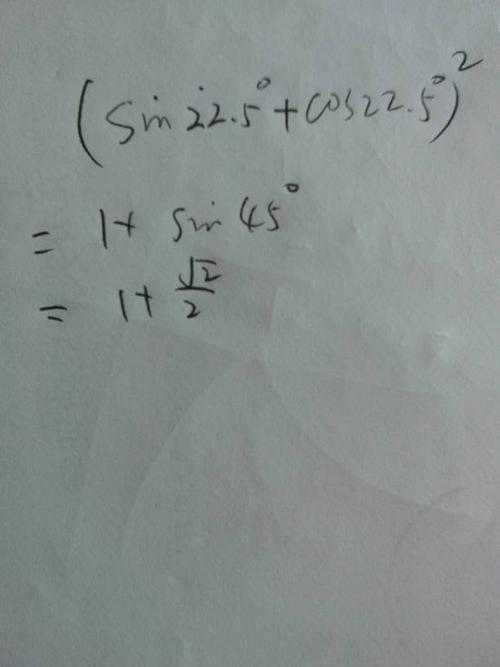 (sin 22.5° + cos 22.5°)²
= 1 + sin 45°
= 1 + √2/2